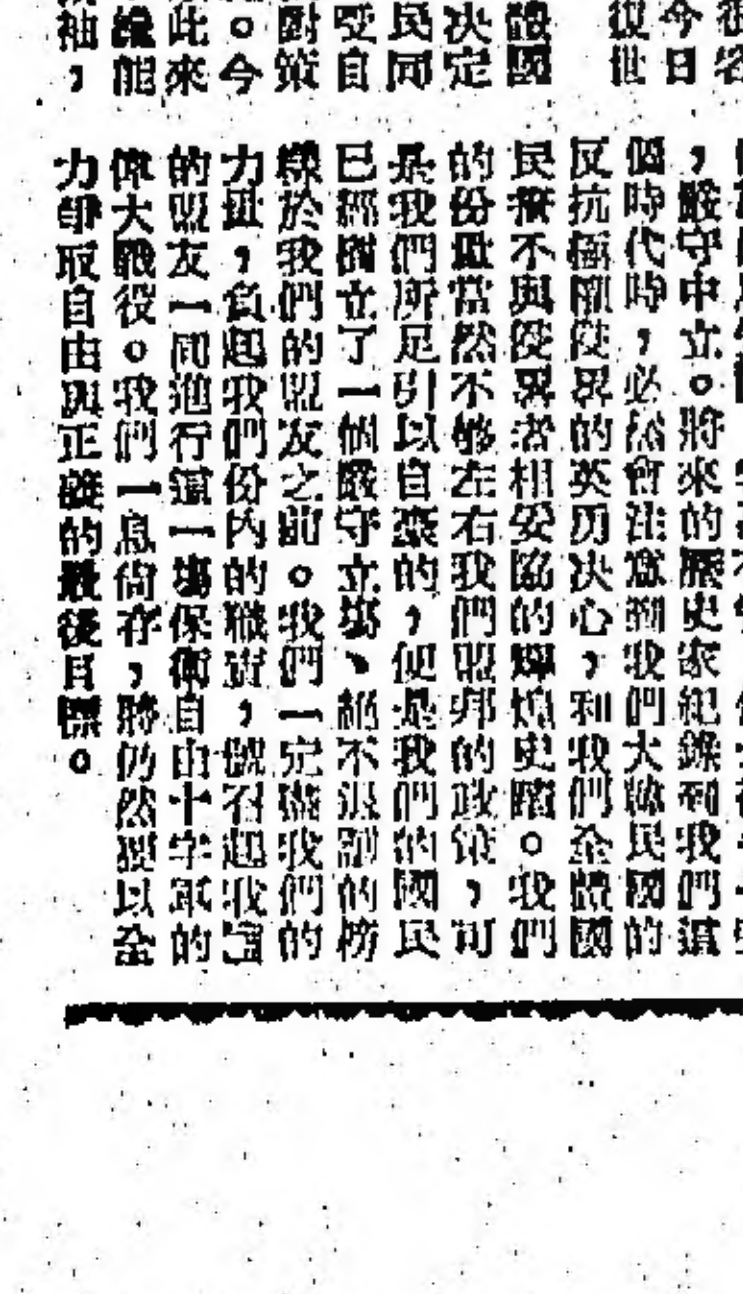 今日
世
體國
决定
民同
受自
對策
。今
此來
纔能
袖，
，嚴守中立。將來的歷史家紀錄到我們這
個時代時，必然會注意到我們大韓民國的
反抗極權侵畧的英勇决心，和我們全體國
民誓不與侵畧者相妥協的輝煌史蹟。我們
的份量當然不够左右我們盟邦的政策，可
是我們所足引以自豪的，便是我們的國民
已經樹立了一個嚴守立塲、絕不退讓的榜
樣於我們的盟友之前。我們一定盡我們的
力量，負起我們份內的職責，號召起我
的盟友一同進行這一塲保衞自由十字軍的
偉大戰役。我們一息尚存，將仍然要以全
力爭取自由與正義的最後目標。